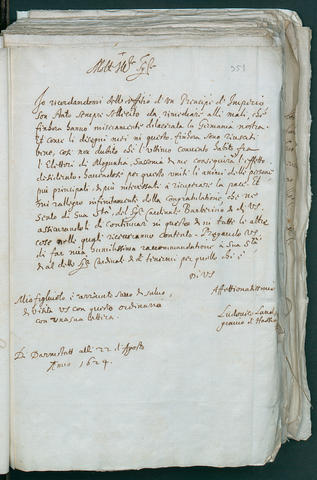 351
Molt Ill.re Sig.re
Io ricordandomi dell'offitio d'un Principe d'Imperio
son stato sempre sollecito da rimediare alli mali, che
finhora hanno miseramente dilacerata la Germania nostra.
Et come li disegni miei in questo finhora sono riusciti
bene, così non dubito che l'ultimo convento habito fra
l'Elettori di Mogunza, Sassonia ne conseguirà l'effetto
desiderato, havendosi per questo uniti li animi delle persone
più principali, & più interessati à ricuperare la pace. Et
mi rallegro infinitamente della congratulatione che ne
sento di Sua S.tà, del Sig.r Cardinal Barberino & di VS.
assicurandoli di continuar in questo & in tutte le altre
cose nelle quali riceveranno contento. Pregando VS.
di far mia humilissima raccommandatione à Sua S.tà
& al detto Sig.r Cardinal & di tenermi per quello che è
di VS
Affettionatissimo
Mio figliuolo è arrivato sano & salvo,
& visita VS con questo ordinario
con una sua lettera.
Ludovico Land
gravio d'Hassia
Di Darmstatt alli 22 d'Agosto
Anno 1624.